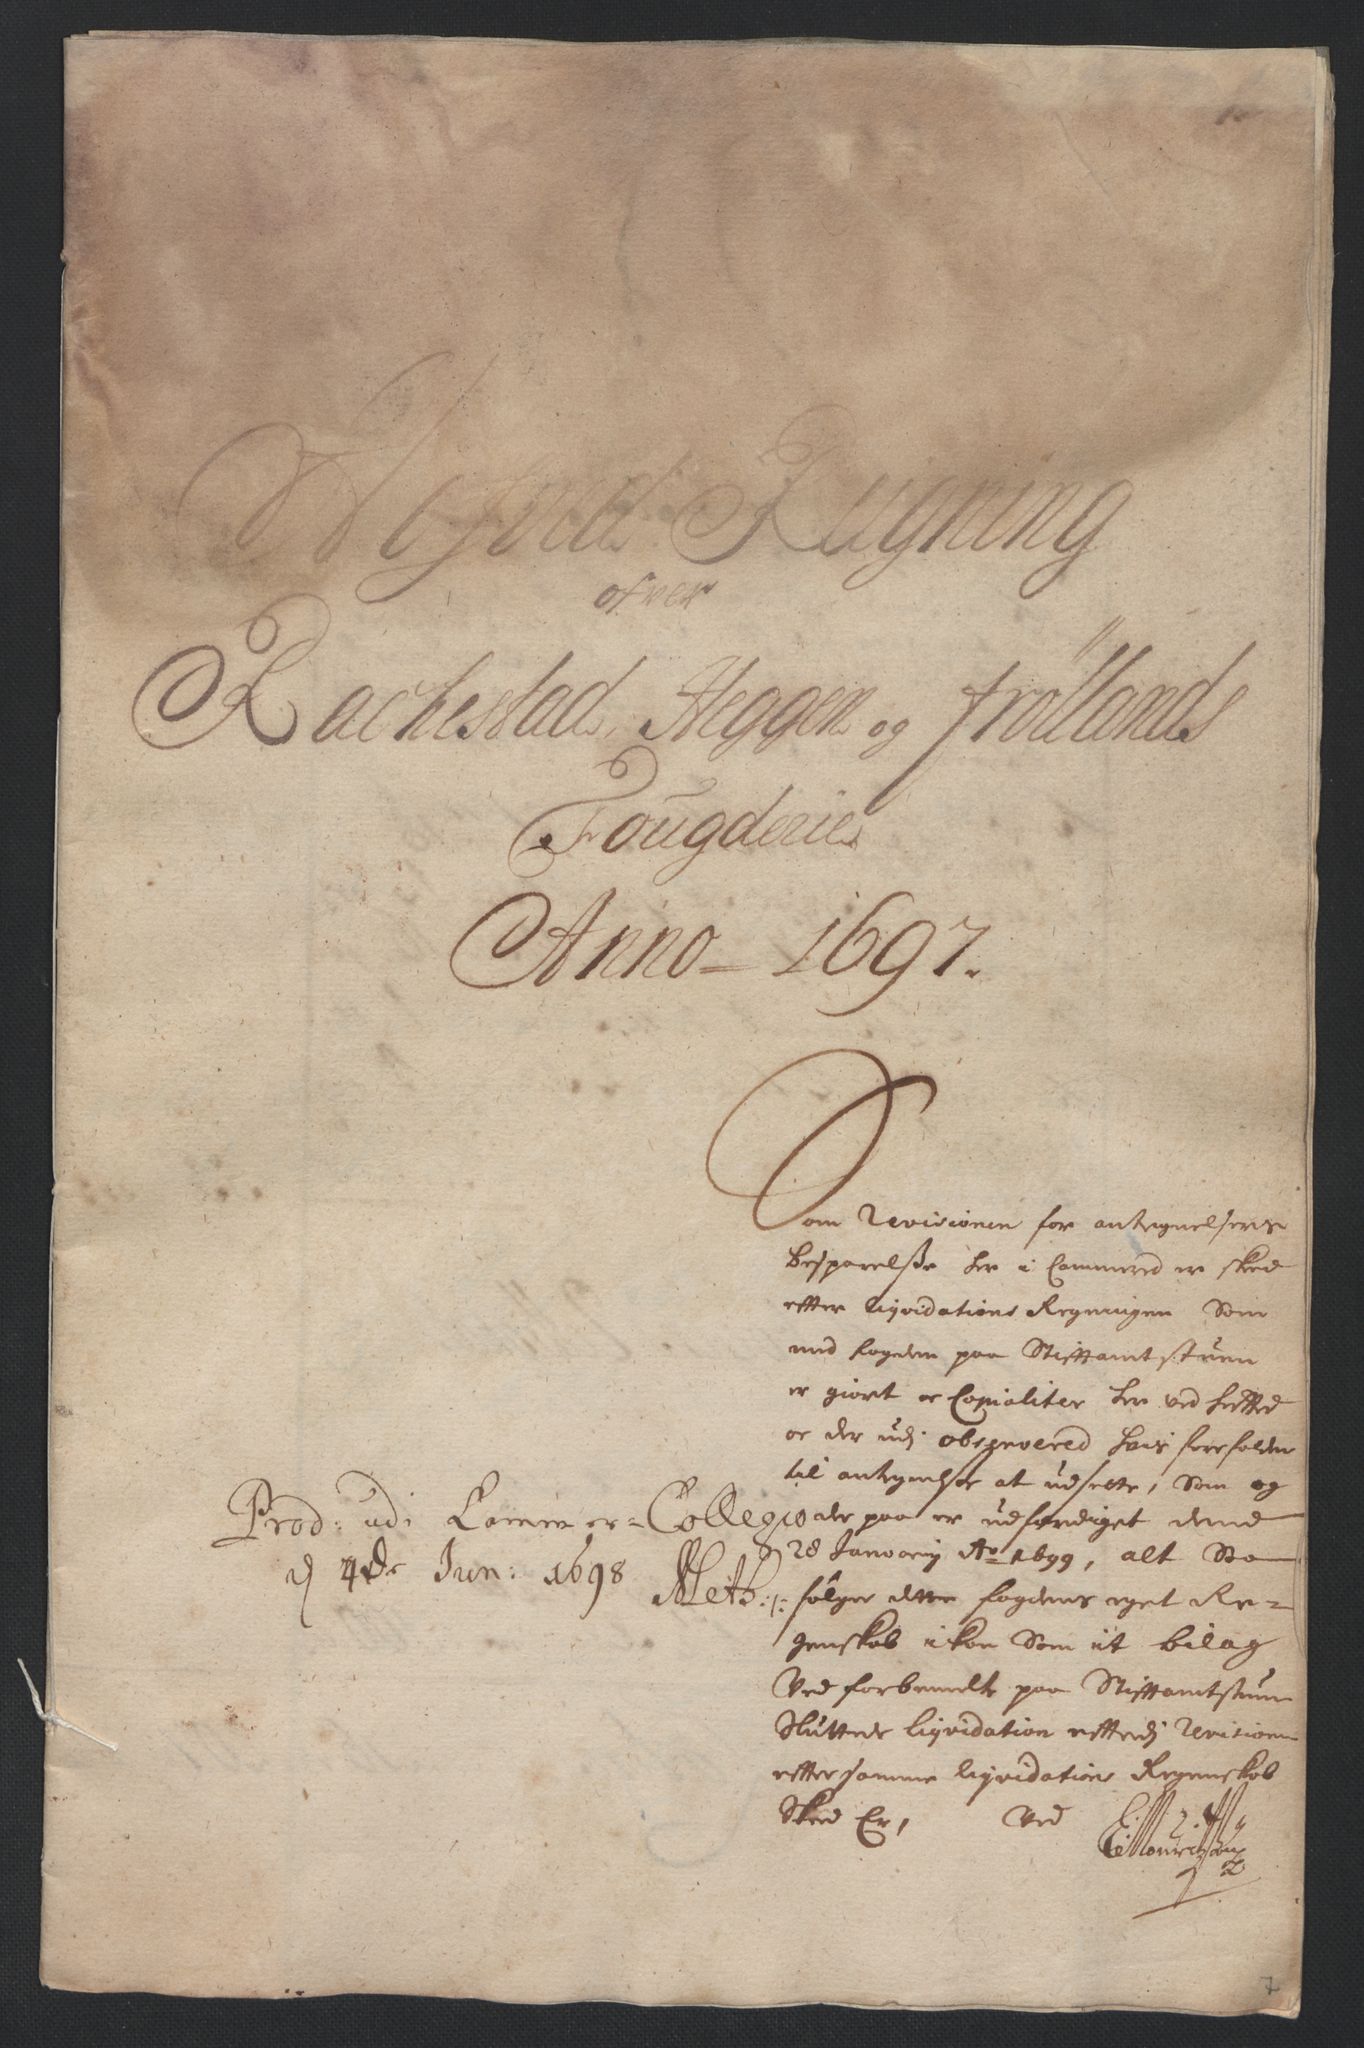 Afsted Regning
ofver
Rachestad, Heggen og Frölands
Fougderie
Anno 1697.
Som Revisionen for antegnelsernes
besparelsse her i Cammered er skeed
efter liqvidations Regningen Som
med fogden paa Stiftamtstuen
er giort oc Copialiter her ved heftted
oc der udj observered hvis forefalden
til antegnelse at udsette, Som og
der paa er udferdiget dend
28 Januarij Ao 1699, alt Saa
følger dette fogdens eget Re-
genskab ickon Som it bilag
Ved forbemelte paa Stiftamtstuen
Sluttede liqvidation efterdj Revisionen
efter samme liqvidations Regenskab
Skeed Er, Ved
Prod: udi Cammer-Collegio
d 4de Jun: 1698
7